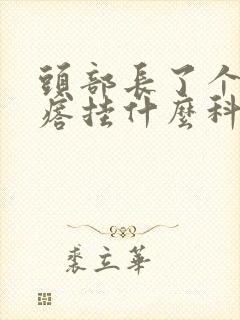 頭部長了个
瘩挂什麼科
裘立華